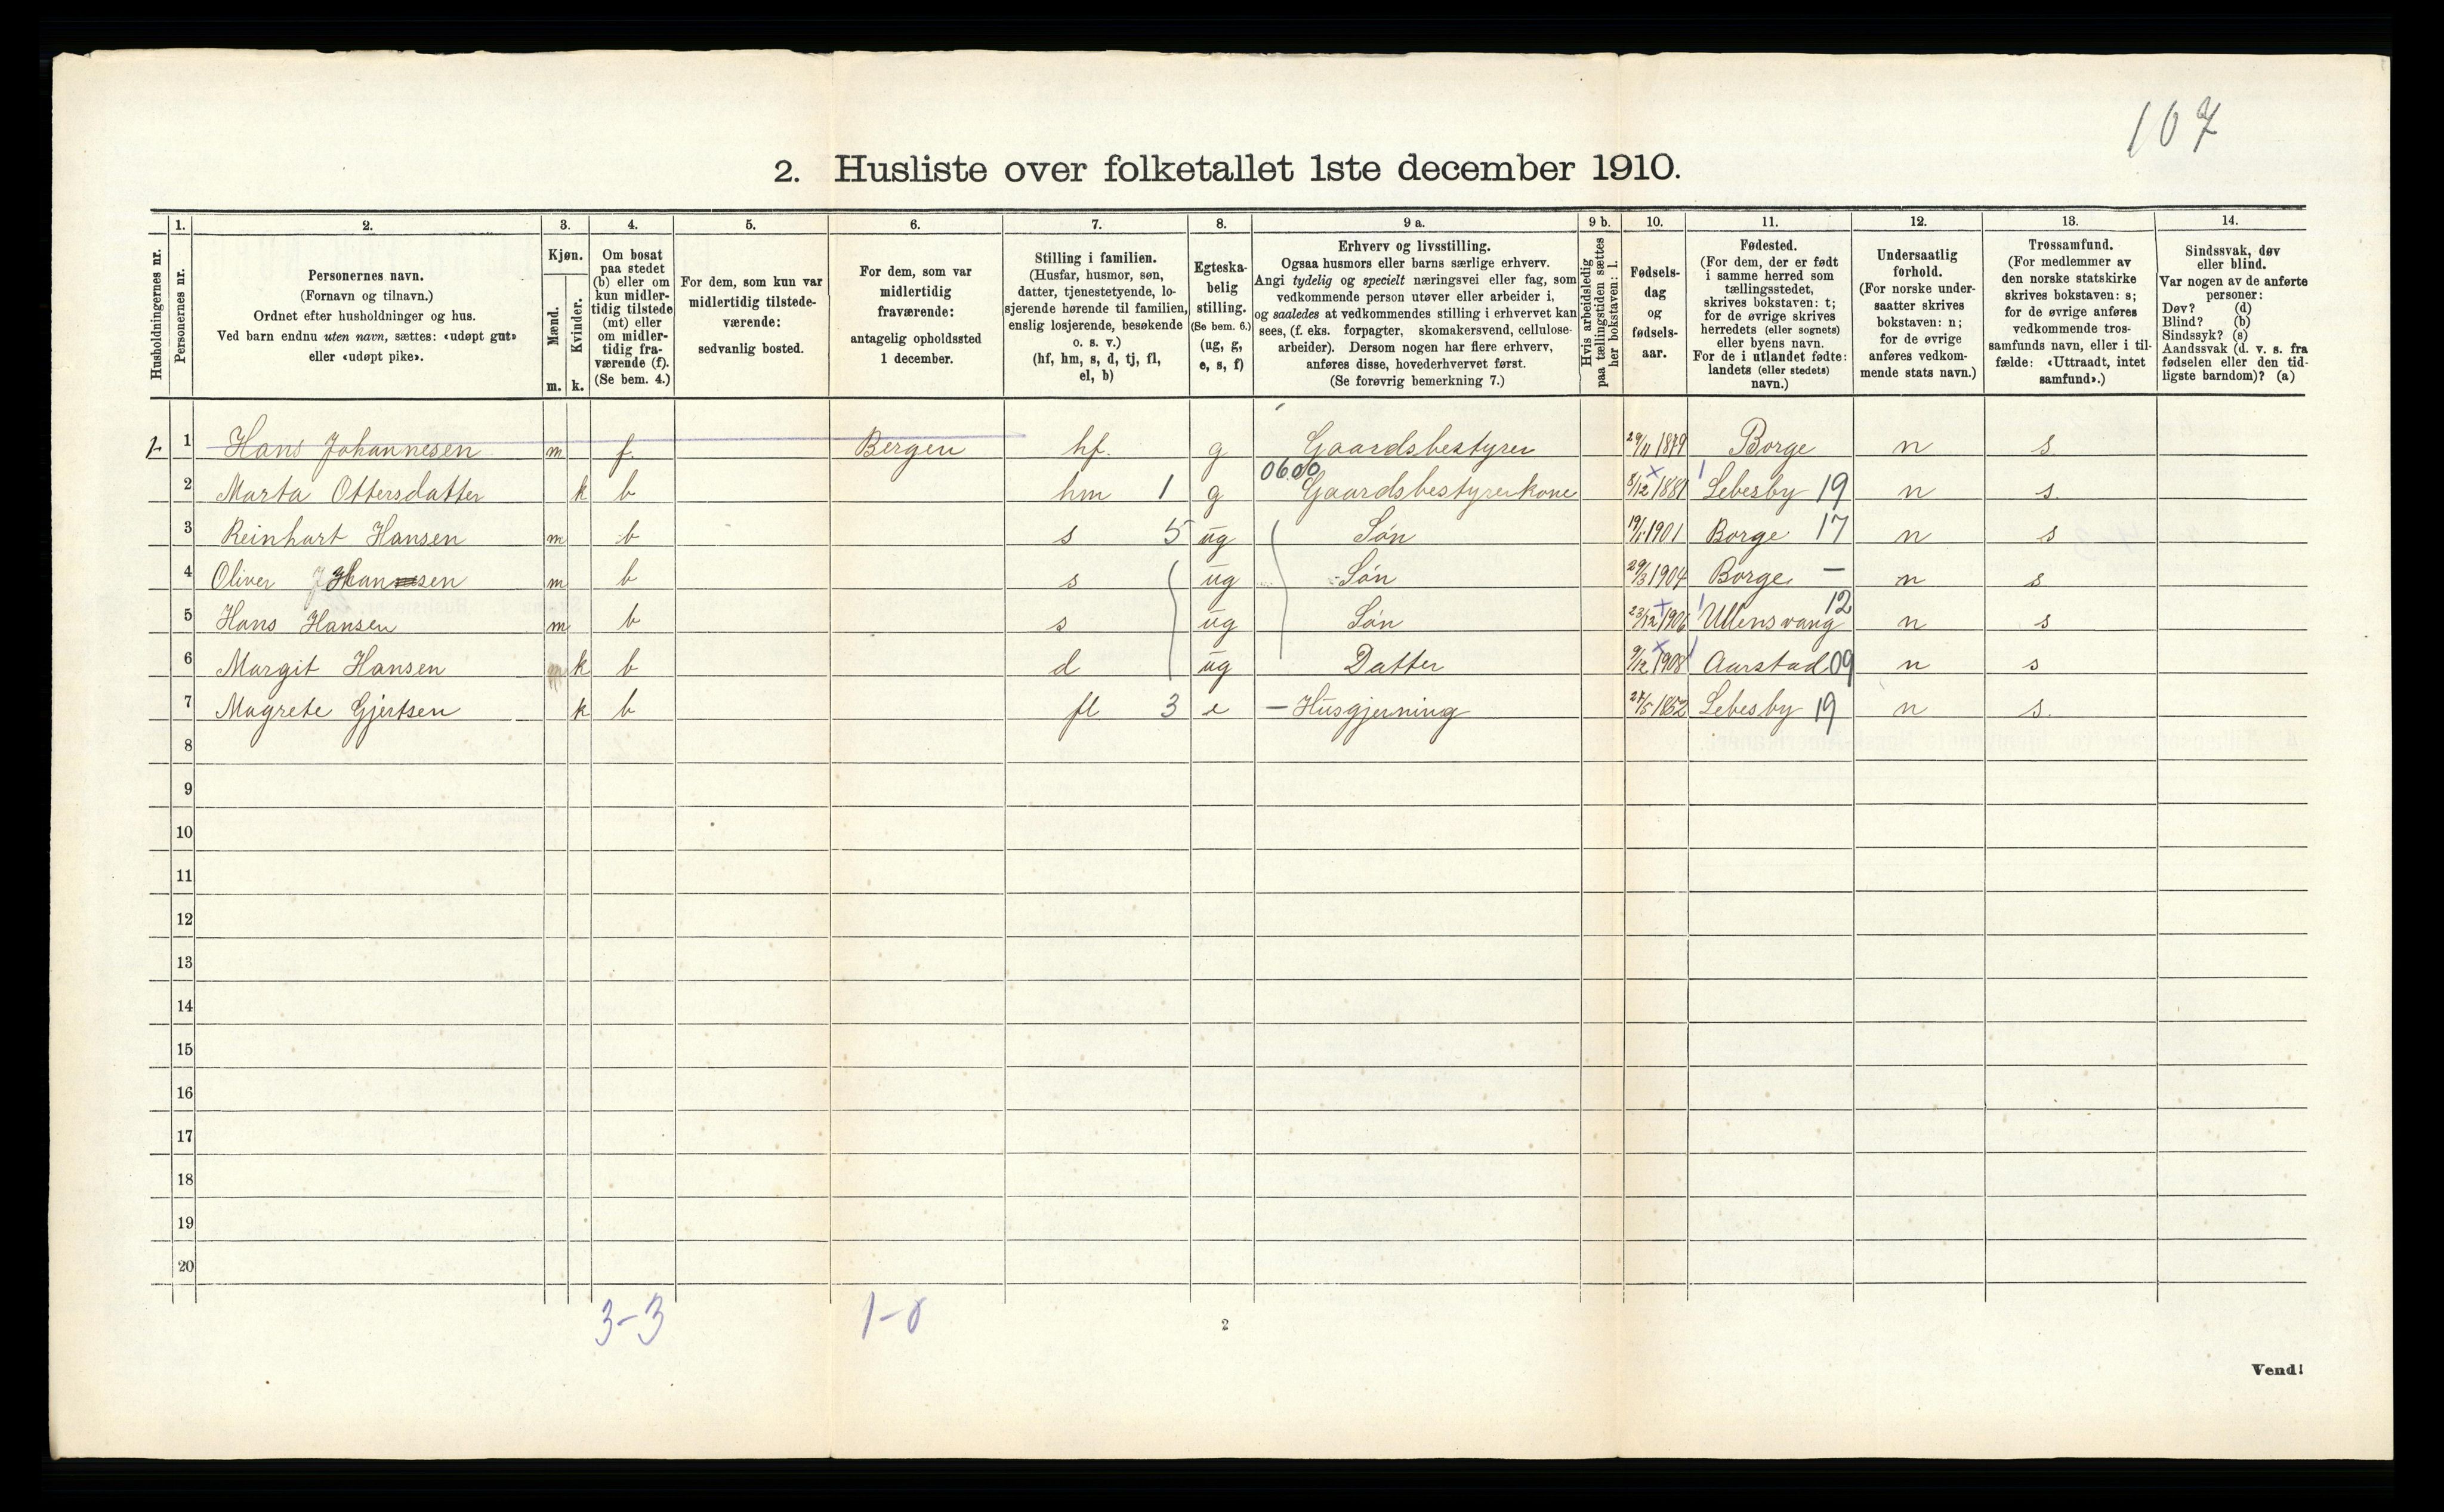 107
2. Husliste over folketallet 1ste december 1910.
Husholdningernes nr.
1. Personernes nr.
2. Personernes navn. (Fornavn og tilnavn.) Ordnet efter husholdninger og hus. Ved barn endnu uten navn, sættes: «udøpt gut» eller «udøpt pike».
3. Kjøn. Mænd. m. Kvinder. k.
4. Om bosat paa stedet (b) eller om kun midlertidig tilstede (mt) eller om midlertidig fraværende (f). (Se bem. 4.)
5. For dem, som kun var midlertidig tilstedeværende: sedvanlig bosted.
6. For dem, som var midlertidig fraværende: antagelig opholdssted 1 december.
7. Stilling i familien. (Husfar, husmor, søn, datter, tjenestetyende, losjerende hørende til familien, enslig losjerende, besøkende o. s. v.) (hf, hm, s, d, tj, fl, el, b)
8. Egteskabelig stilling. (Se bem. 6.) (ug, g, e, s, f)
9 a. Erhverv og livsstilling. Ogsaa husmors eller barns særlige erhverv. Angi tydelig og specielt næringsvei eller fag, som vedkommende person utøver eller arbeider i, og saaledes at vedkommendes stilling i erhvervet kan sees, (f. eks. forpagter, skomakersvend, cellulosearbeider). Dersom nogen har flere erhverv, anføres disse, hovederhvervet først. (Se forøvrig bemerkning 7.)
9 b. Hvis arbeidsledig paa tællingstiden sættes her bokstaven: l.
10. Fødselsdag og fødselsaar.
11. Fødested. (For dem, der er født i samme herred som tællingsstedet, skrives bokstaven: t; for de øvrige skrives herredets (eller sognets) eller byens navn. For de i utlandet fødte: landets (eller stedets) navn.)
12. Undersaatlig forhold. (For norske undersaatter skrives bokstaven: n; for de øvrige anføres vedkommende stats navn.)
13. Trossamfund. (For medlemmer av den norske statskirke skrives bokstaven: s; for de øvrige anføres vedkommende trossamfunds navn, eller i tilfælde: «Uttraadt, intet samfund».)
14. Sindssvak, døv eller blind. Var nogen av de anførte personer: Døv? (d) Blind? (b) Sindssyk? (s) Aandssvak (d. v. s. fra fødselen eller den tidligste barndom)? (a)
1 Hans Johannesen m f. Bergen hf. g Gaardsbestyrer 29/11 1879 Borge n s
2 Marta Ottersdatter k b hm 1 g 0600 Gaardsbestyrerkone 8/12 1881 Lebesby 19 n s.
3 Reinhart Hansen m b s 5 ug Søn 19/1 1901 Borge 17 n s
4 Oliver Hansen m b s ug Søn 29/3 1904 Borge — n s
5 Hans Hansen m b s ug Søn 23/12 1906 Ullensvang 12 n s
6 Margit Hansen k b d ug Datter 9/12 1908 Aarstad 09 n s
7 Magrete Gjertsen k b fl 3 e — Husgjerning Lebesby 19 n s.
8
9
10
11
12
13
14
15
16
17
18
19
20
3-3 1-0
2
Vend!